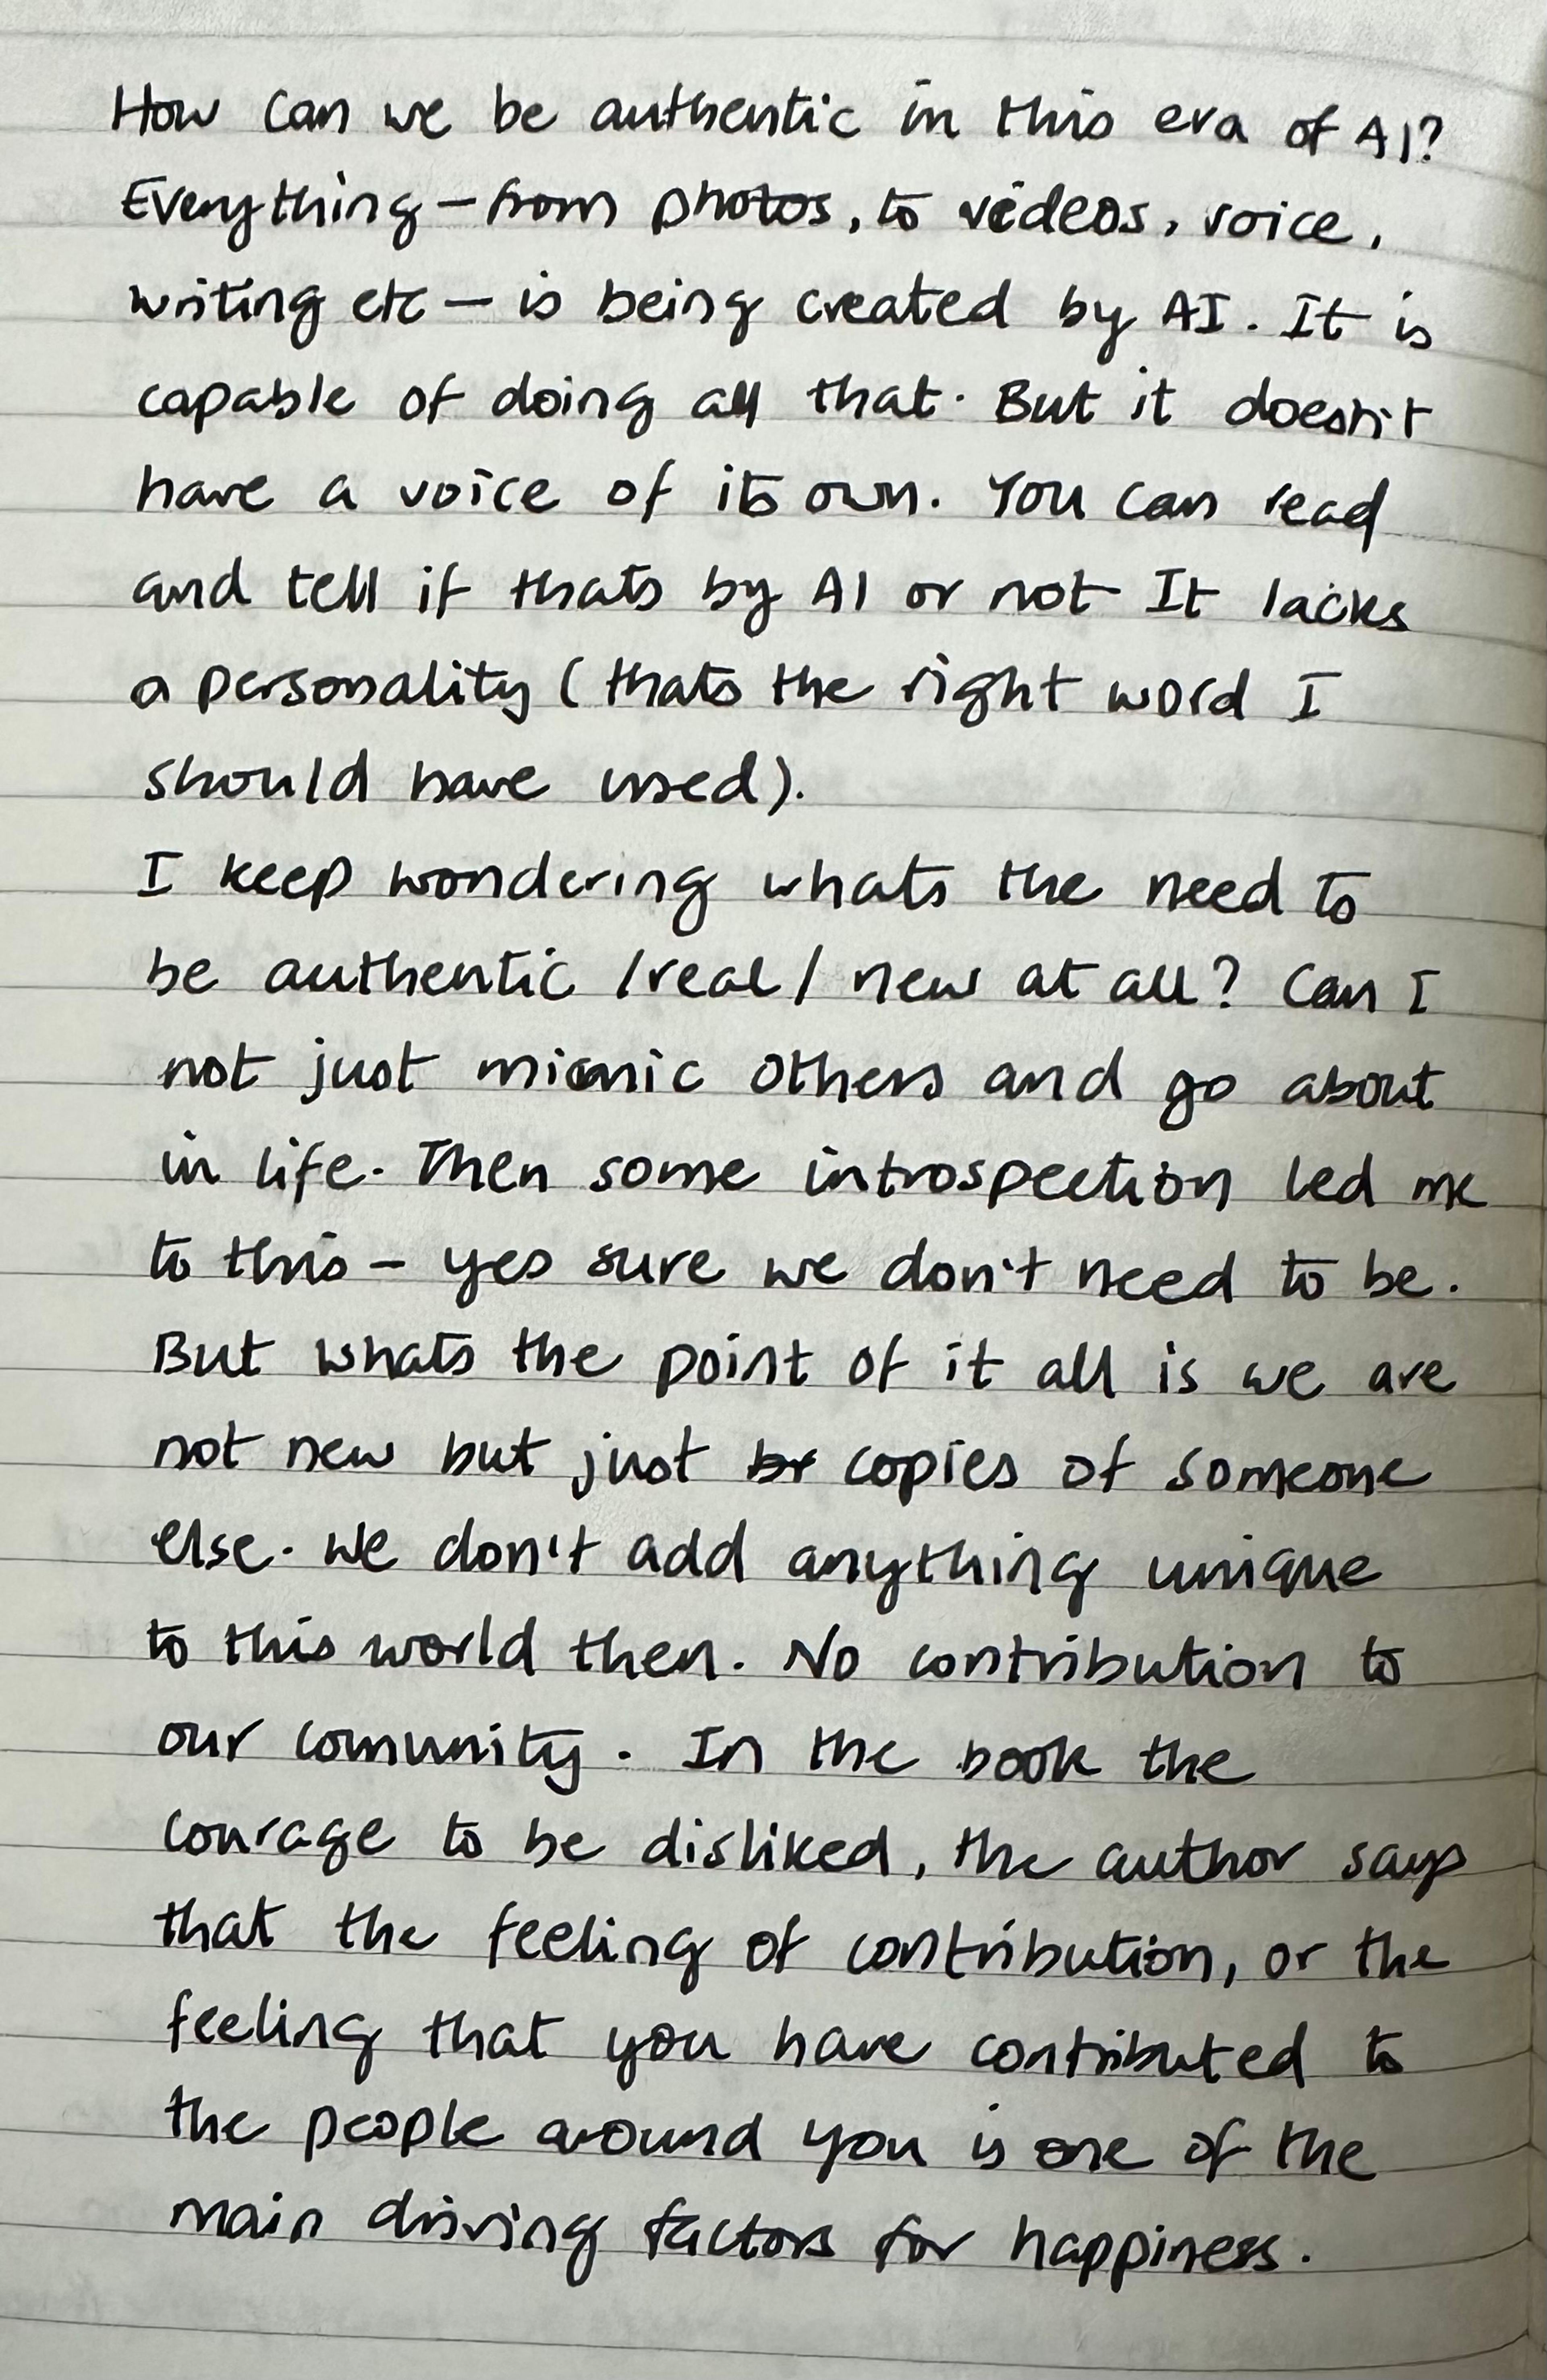 How can we be authentic in this era of AI?
Everything – from photos, to videos, voice,
writing etc – is being created by AI. It is
capable of doing all that. But it doesn't
have a voice of its own. You can read
and tell if thats by AI or not It lacks
a personality (thats the right word I
should have used).
I keep wondering whats the need to
be authentic /real/ new at all? Can I
not just mimic others and go about
in life. Then some introspection led me
to this – yes sure we don't need to be.
But whats the point of it all is we are
not new but just copies of someone
else. We don't add anything unique
to this world then. No contribution to
our comunity. In the book the
courage to be disliked, the author says
that the feeling of contribution, or the
feeling that you have contributed to
the people around you is one of the
main driving factors for happiness.